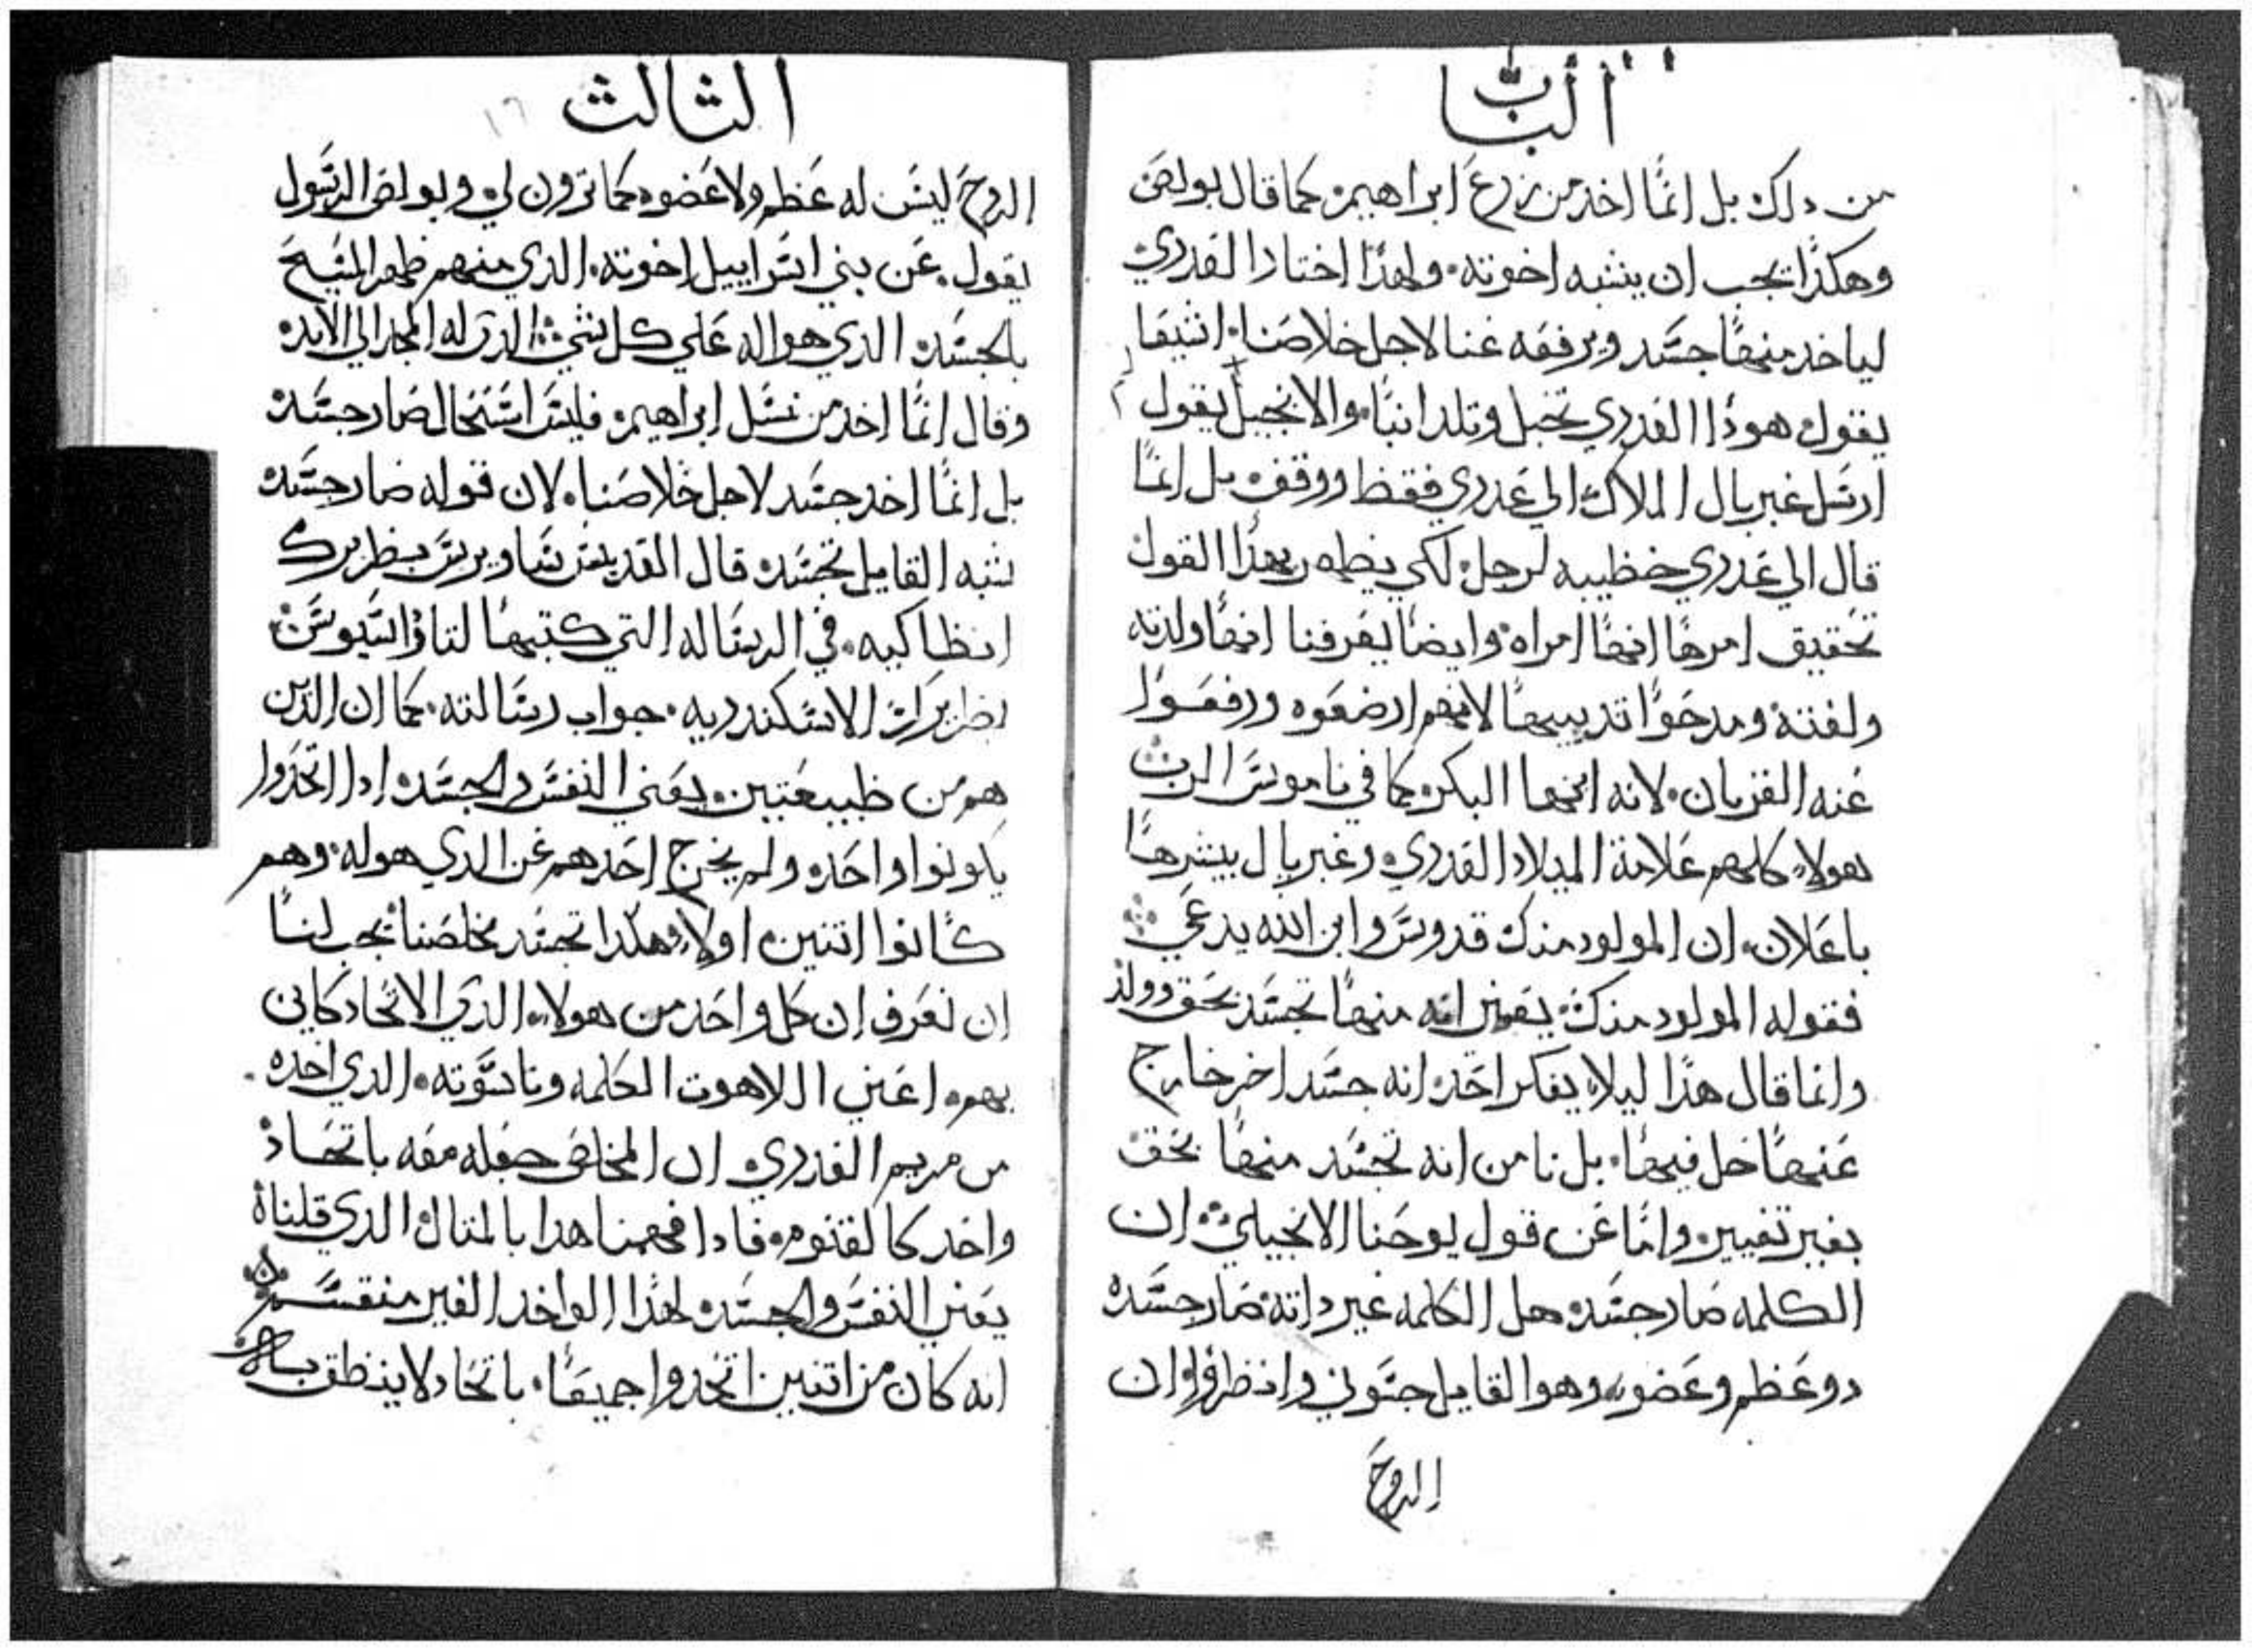 الباب
من دلك بل انما اخد من زرع ابراهيم كما قال بولص
وهكدا يجب ان يشبه اخوته ولهدا اختار العدري
لياخد منها جسد ويرفعه عنا لاجل خلاصنا اشيعا
يقول هودا العدري تحبل وتلد ابنا والانجيل يقول
ارسل غبريال الملاك الي عدري فقط ووقف بل انما
قال الي عدري خطيبه لرجل لكي يظهر بهدا القول
تحقيق امرها انها امراه وايضا يعرفنا انها ولدته
ولفته ومدحوا تدييها لانهم ارضعوه ورفعوا
عنه القربان لانه ابنها البكر كما في ناموس الرب
هولاء كلهم علامة الميلاد العدري وغبريال يبشرها
باعلان ان المولود منك قدوس وابن الله يدعي
فقوله المولود منك يعني انه منها تجسد بحق وولد
وانما قال هدا ليلا يفكر احد انه جسد اخر خارج
عنها حل فيها بل نامن انه تجسد منها بحق
بغير تغيير واما عن قول يوحنا الانجيلي ان
الكلمه صار جسد هل الكلمه غير داته صار جسد
دو عظم وعضو وهو القايل جسوني وانظروا ان
الروح
الثالث
١٦
الروح ليس له عظم ولا عضو كما ترون لي وبولص الرسول
يقول عن بني اسراييل اخوته الدي منهم ظهر المسيح
بالجسد الدي هو اله علي كل شي الدي له المجد الي الابد
وقال انما اخد من نسل ابراهيم فليس استحال صار جسد
بل انما اخد جسد لاجل خلاصنا لان قوله صار جسد
شبه القايل تجسد قال القديس ساويرس بطريرك
انطاكيه في الرساله التي كتبها لتاوداسيوس
بطريرك الاسكندريه جواب رسالته كما ان الدين
هم من طبيعتين يعني النفس والجسد ادا اتحدوا
يكونوا واحد ولم يخرج احدهم عن الدي هو له وهم
كانوا اتنين اولا وهكدا تجسد مخلصنا يجب لنا
ان نعرف ان كل واحد من هولاء الدي الاتحاد كاين
بهم اعني اللاهوت الكلمه وناسوته الدي اخده
من مريم العدري ان المخلص جعله معه باتحاد
واحد كالقنوم فادا فهمنا هدا بالمتال الدي قلناه
يعني النفس والجسد لهدا الواحد الغير منقسم
انه كان من اتنين اتحدوا جميعا باتحاد لا ينطق به